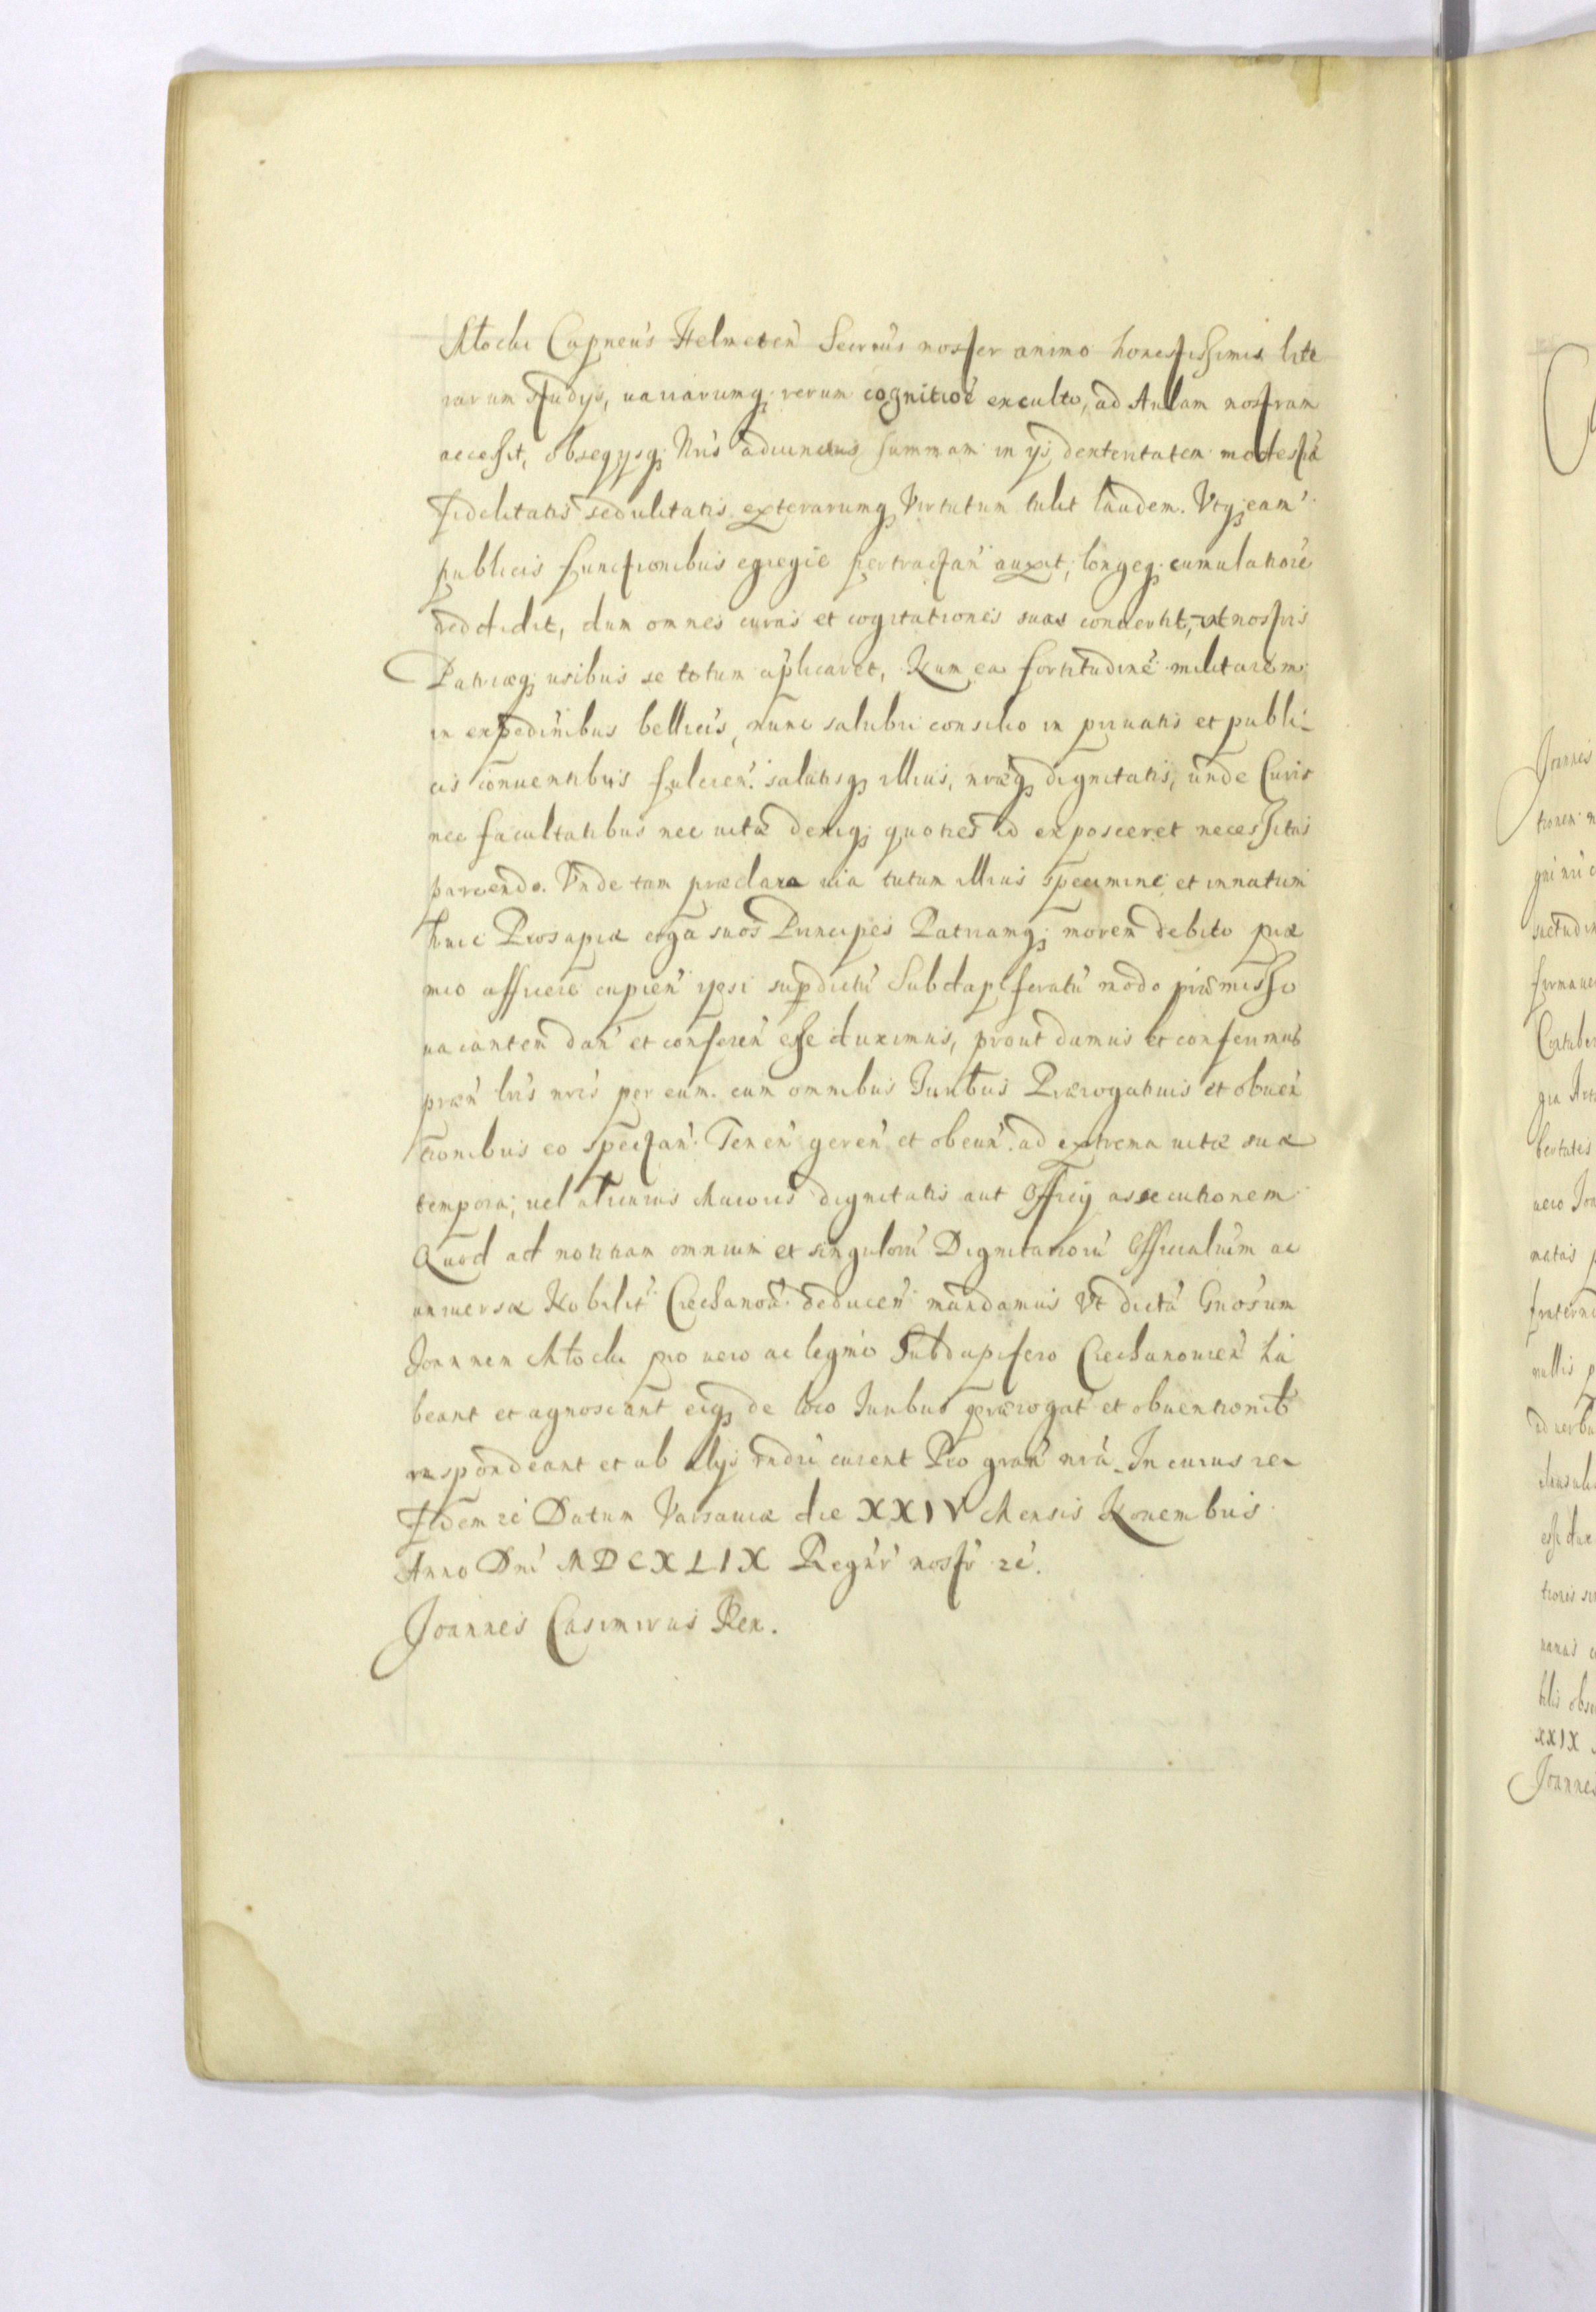 Młocki Capneus Helmeten Secrius noster animo honestissimis lite
rarum studys, uariarumq; rerum cognitioe exculto, ad Aulam nostram
accessit, obseqysq; Nris adiunctus summam in ys dexteritatem modestia
fidelitatis sedulitatis exterarumq; Virtutum tulit laudem. Vtq; eam
publicis functionibus egregie pertractan auxit, longeq; cumulatiore
reddidit, dum omnes curas et cogitationes suas conuertit, ut nostris
Patriaeq; usibus se totum aplicaret, Num ea fortitudine militarem
in expedinibus bellicis, nunc salubri consilio in priuatis et publi-
cis conuentibus fulcien. salutisq; illius, nraeq; dignitatis, unde Curis
nec facultatibus nec uitae deniq; quoties id exposceret necessitas
parcendo. Vnde tam praeclara uia tutum illius specimine, et innatum
huic Prosapiae erga suos Principes Patriamq; morem debito prae
mio afficere cupien ipsi supdictu Subdapiferatu modo praemisso
uacantem dan et conferen esse duximus, prout damus et conferimus
praen lris nris per eum. cum omnibus Iuribus Praerogatiuis et obuen
tionibus eo spectan. Tenen geren et obeun. ad extrema uitae suae
tempora; uel alterius Maioris dignitatis aut Officy assecutionem
Quod ad notitiam omnium et singuloru Dignitarioru Officialium ac
uniuersae Nobilit Ciechanou. deducen mandamus Vt dictu Gnosum
Joannem Młocki pro uero ac legmo Subdapifero Ciechanouien ha
beant et agnoscant eiq; de loco Iuribus praerogat et obuentionib
respondeant et ab alys rndri curent Pro gran nra. In cuius rei
fidem rc Datum Varsauiae die XXIV Mensis Nouembris
Anno Dni MDCXLIX Regnr nostr rc.
Joannes Casimirus Rex.
Joannes
XXIX
Joannes